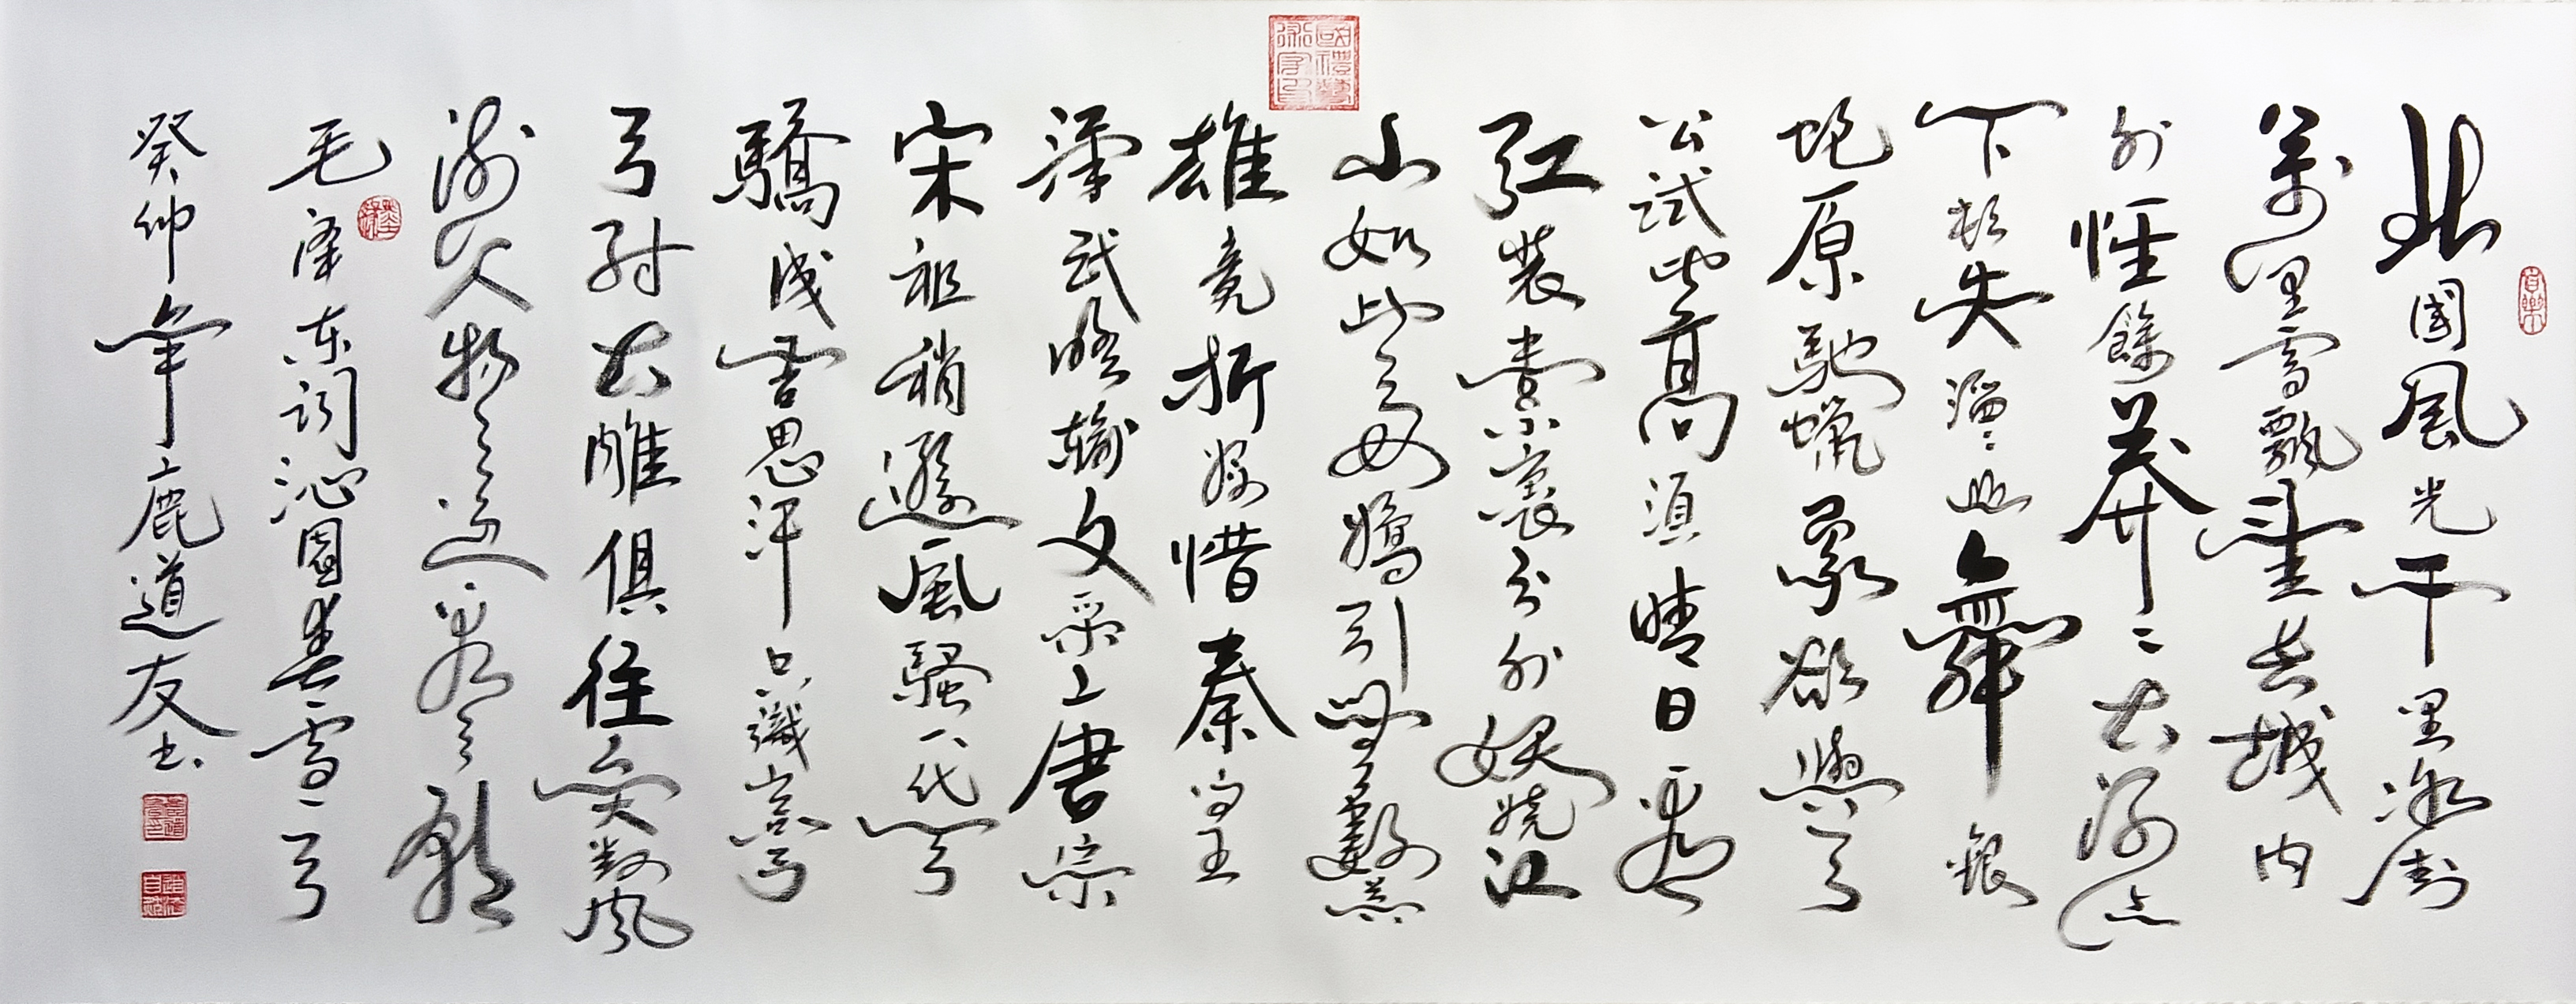 北國風光千里冰封
萬里雪飄望長城内
外惟餘莽〻大河上
下頓失滔〻山舞銀
蛇原馳蠟象欲與天
公試比高須晴日看
红装素裹分外妖娆江
山如此多嬌引無數英
雄竞折腰惜秦皇
漢武略輸文采唐宗
宋祖稍遜風骚一代天
驕成吉思汗只識彎
弓射大雕俱往矣数風
流人物還看今朝
毛澤东詞沁園春雪一首
癸卯年鹿道友书
國禮藝術家印